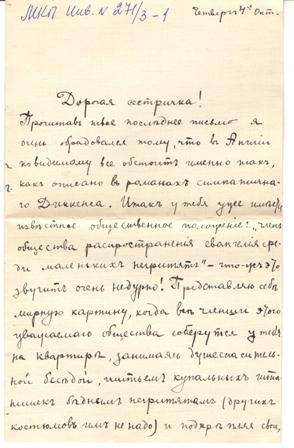 МКП Инв. N 271/3-1
Четвергъ 4го Окт.
Дорогая сестричка!
Прочитавъ твое послѣднее письмо я
очень обрадовался тому, что въ Англіи
повидимому все обстоитъ именно такъ,
какъ описано въ романахъ симпатична-
го Диккенса. Итакъ у тебя уже имѣется
извѣстное общественное положеніе: „членъ
общества распространенія евангелія сре-
ди маленькихъ негритятъ" - что-жъ это
звучитъ очень недурно! Представляю себѣ
мирную картину, когда всѣ члены этого
уважаемаго общества соберутся у тебя
на квартирѣ, занимаясь душеспаситель-
ной бесѣдой, шитьемъ купальныхъ шта-
нишекъ бѣднымъ негритятамъ (другихъ
костюмовъ имъ не надо) и подкрѣпляя свои,